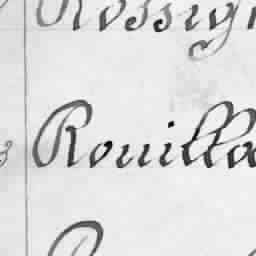 Rossign
Rouilla